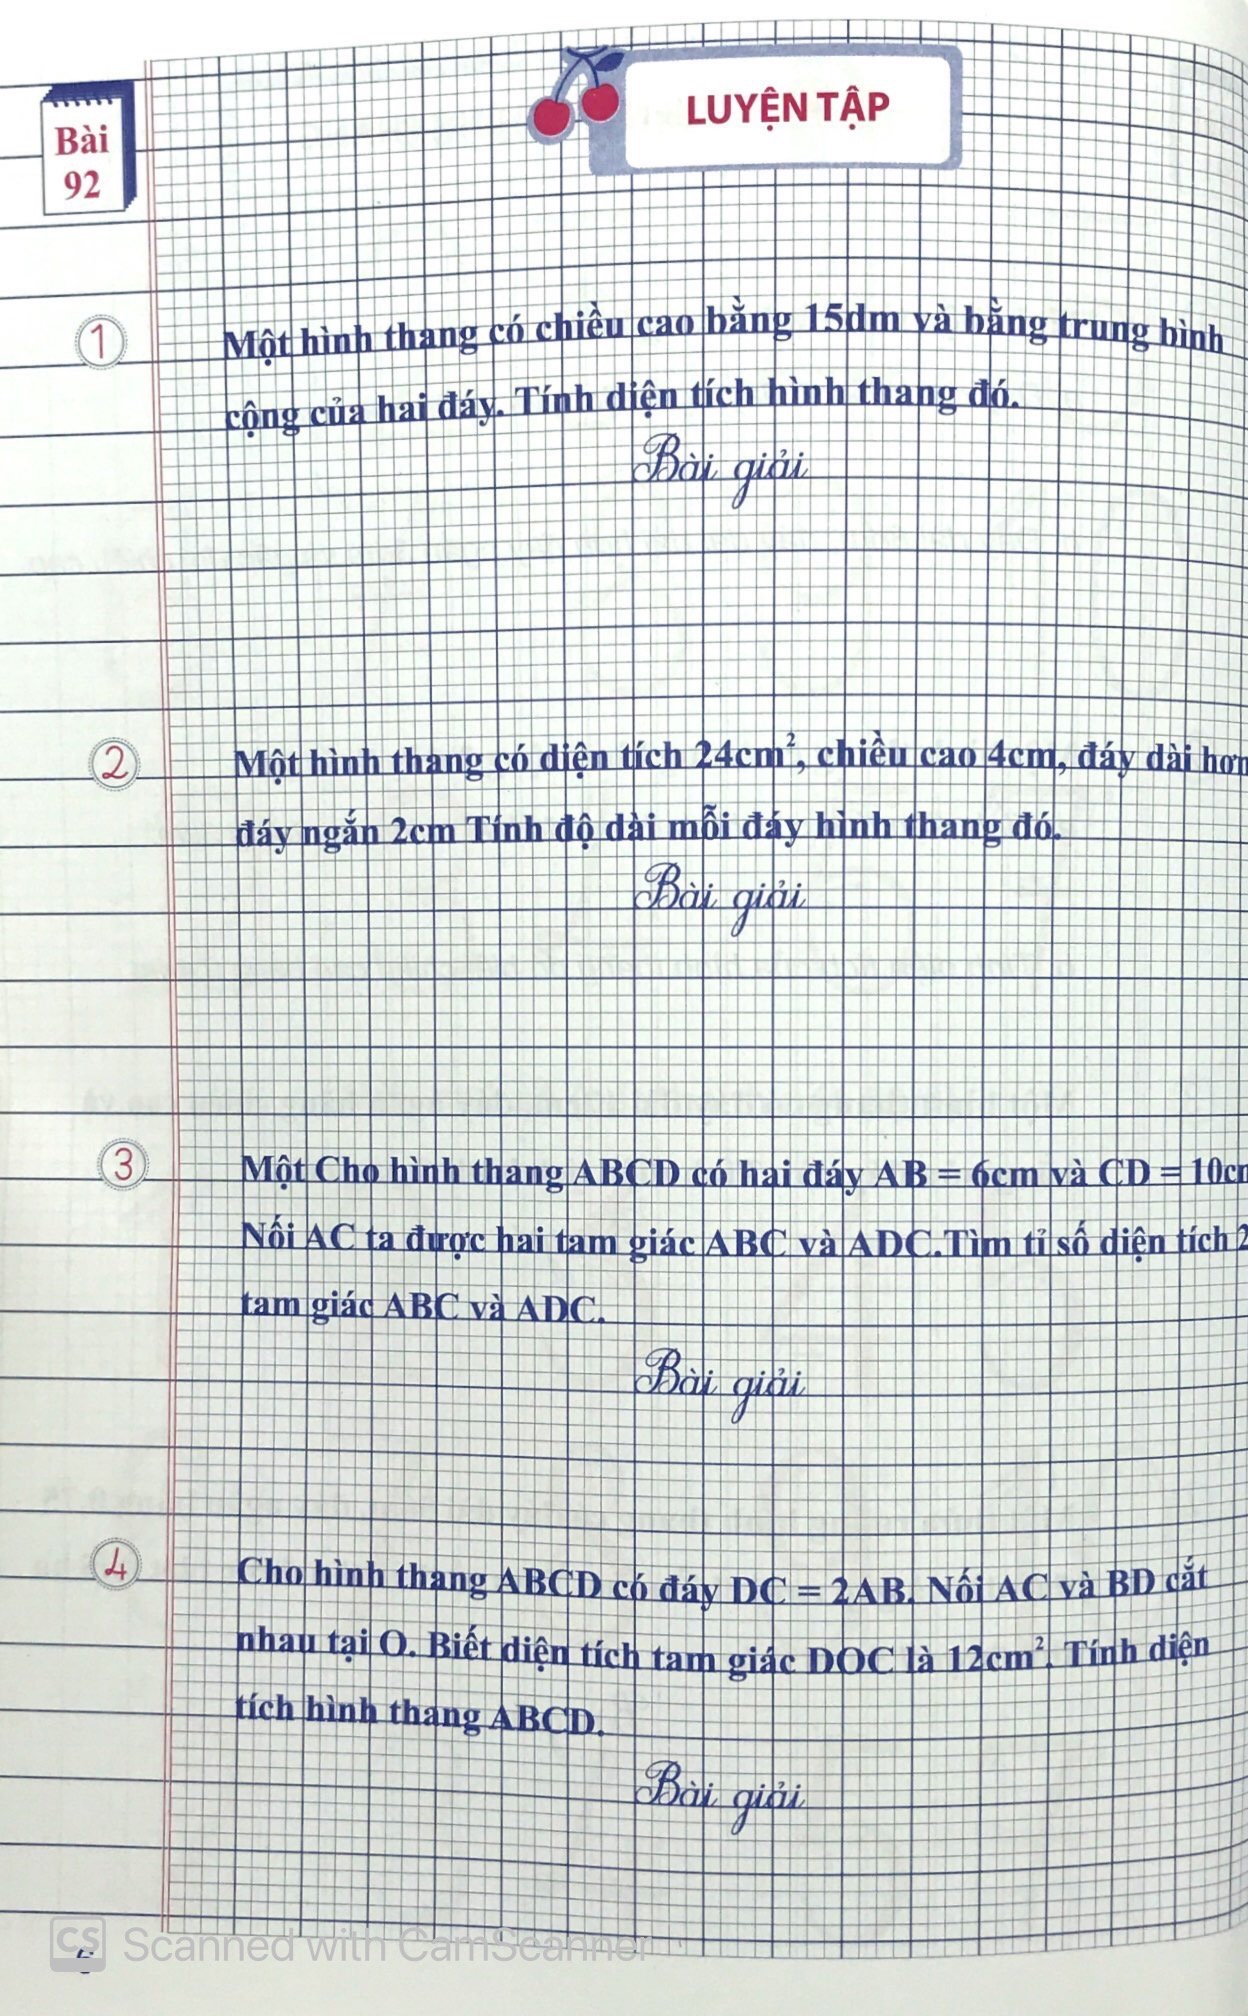 LUYỆN TẬP
Bài
92
1
Một hình thang có chiều cao bằng 15dm và bằng trung bình
cộng của hai đáy. Tính diện tích hình thang đó.
Bài giải
2
Một hình thang có diện tích 24cm², chiều cao 4cm, đáy dài hơn
đáy ngắn 2cm Tính độ dài mỗi đáy hình thang đó.
Bài giải
3
Một Cho hình thang ABCD có hai đáy AB = 6cm và CD = 10cm
Nối AC ta được hai tam giác ABC và ADC.Tìm tỉ số diện tích 2
tam giác ABC và ADC.
Bài giải
4
Cho hình thang ABCD có đáy DC = 2AB. Nối AC và BD cắt
nhau tại O. Biết diện tích tam giác DOC là 12cm². Tính diện
tích hình thang ABCD.
Bài giải
CS Scanned with CamScanner